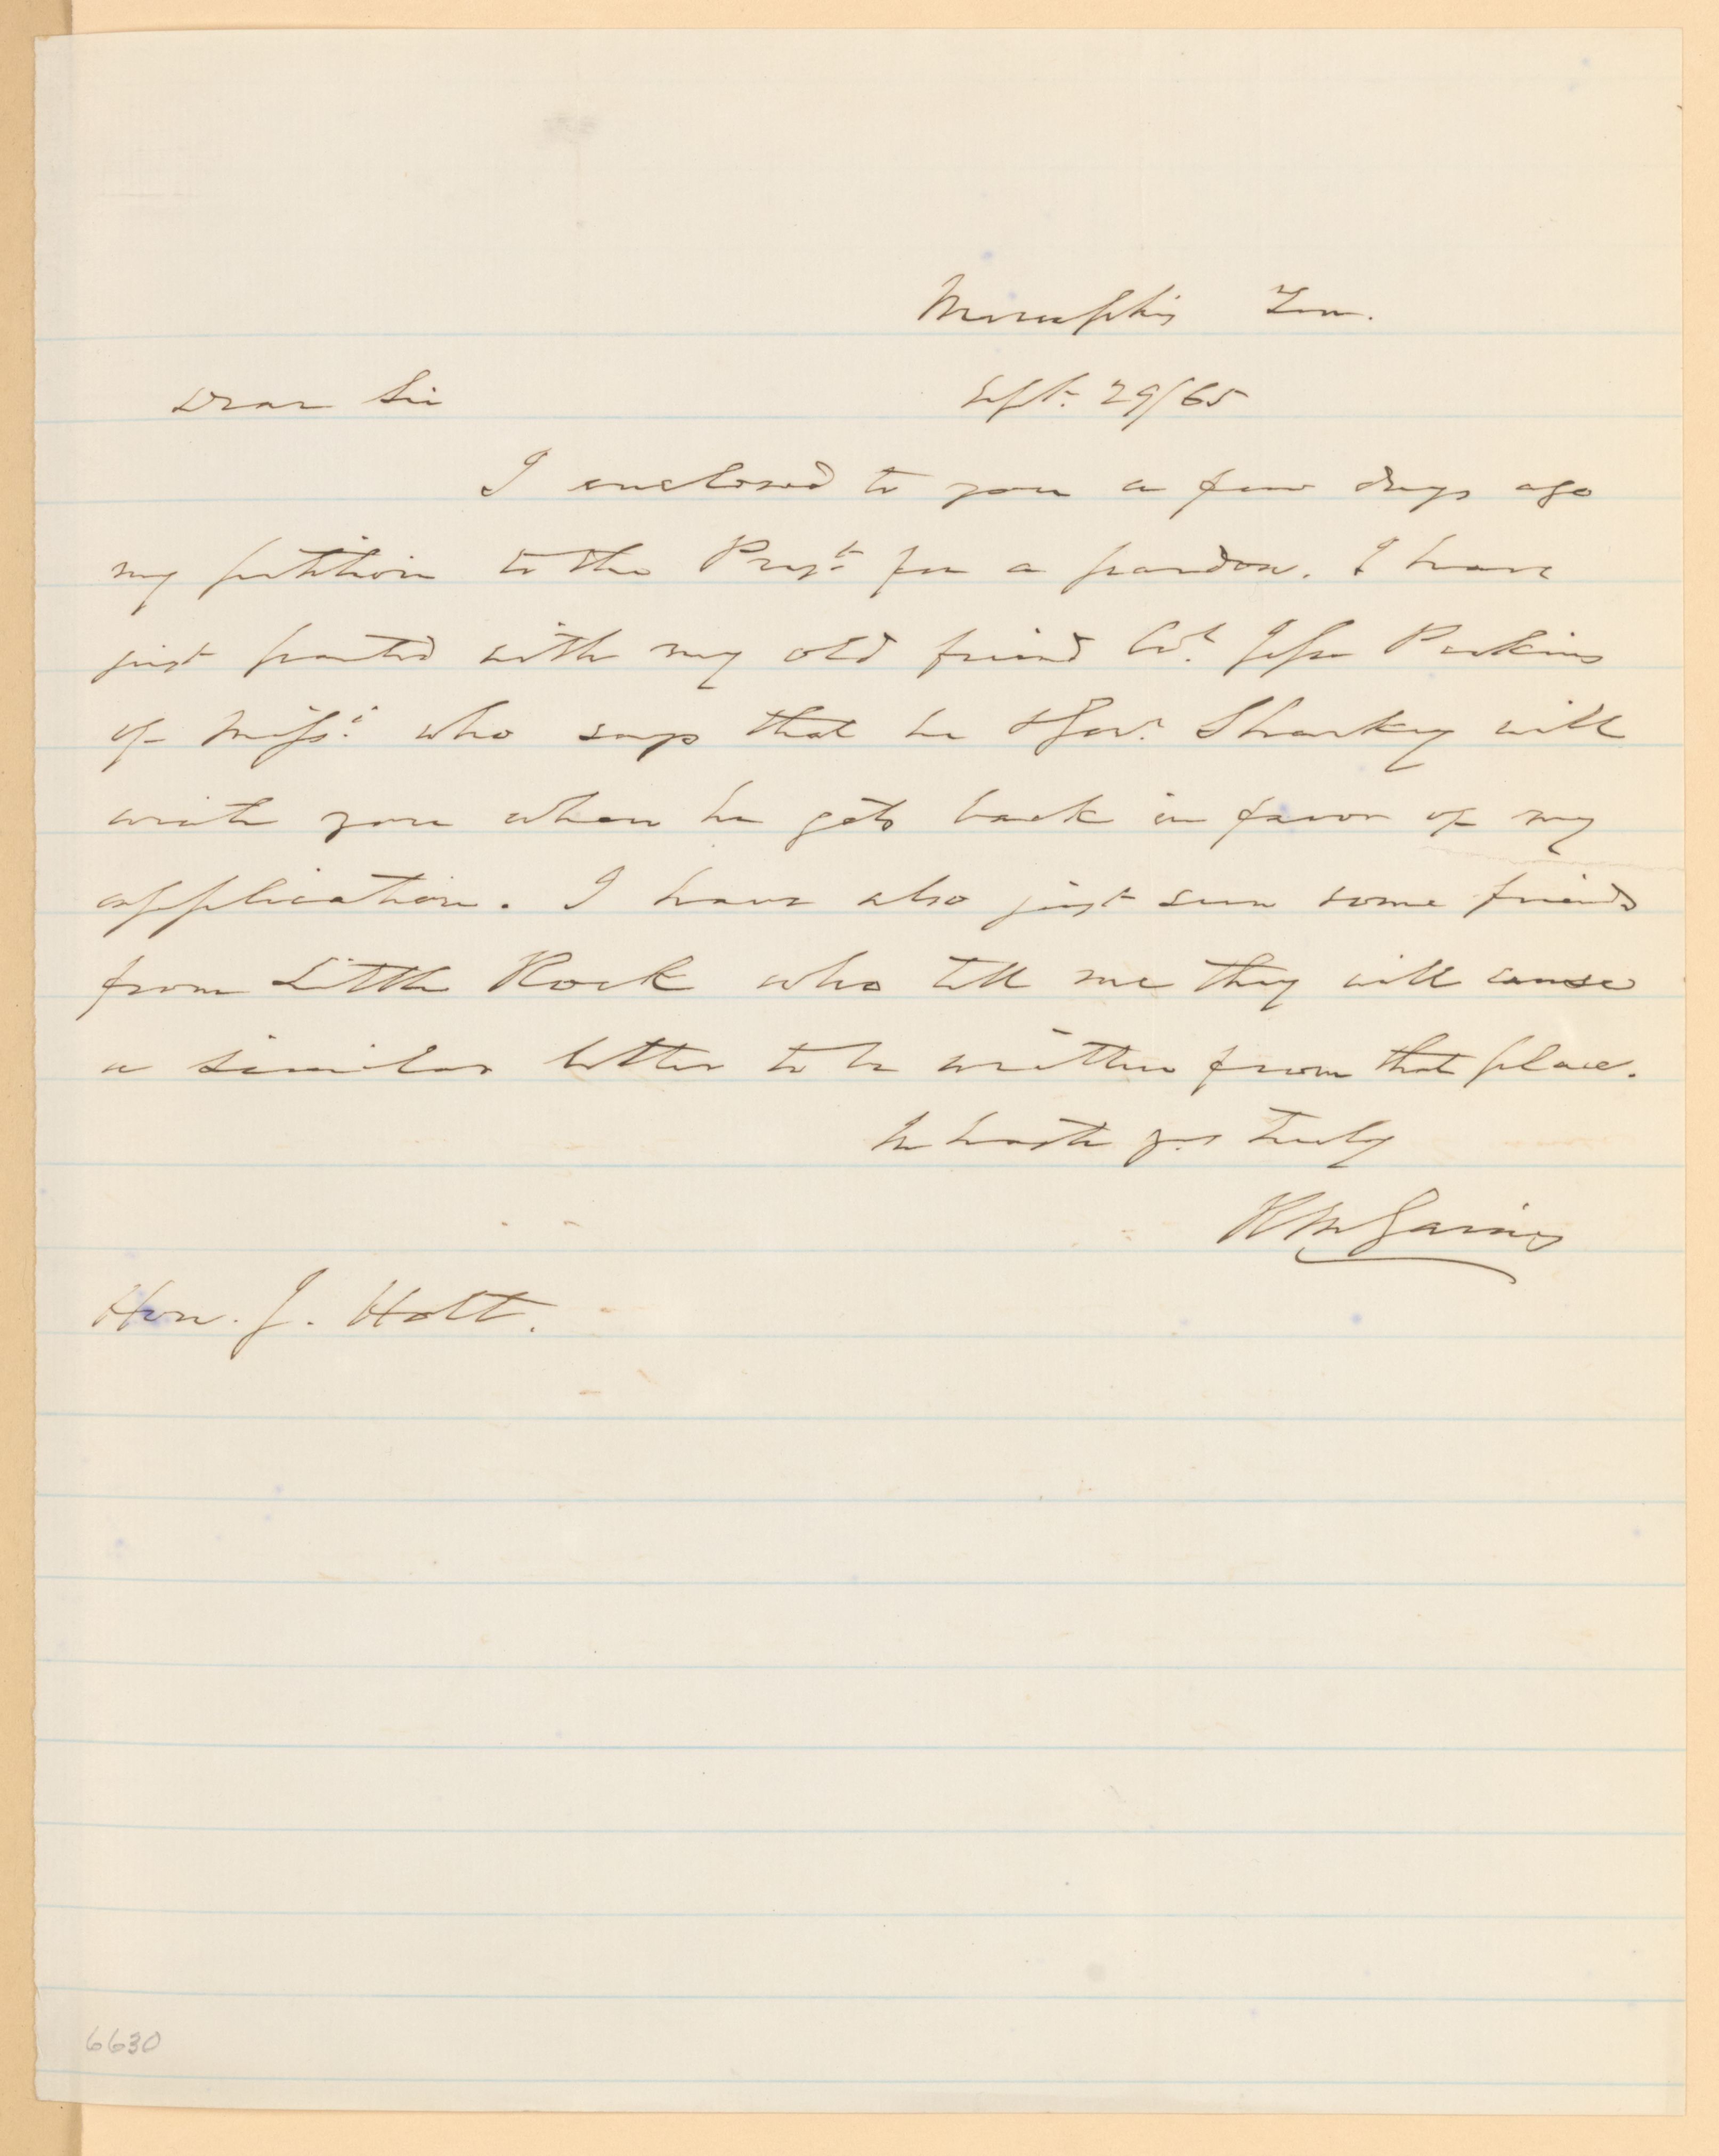 Memphis Tenn.
Dear Sir Sept. 29/65
I enclosed to you a few days ago
my petition to the Prest. for a pardon. I have
just parted with my old friend Col. Jesse Perkins
of Missi. who says that he & Gov. Sharkey will
write you when he gets back in favor of my
application. I have also just seen some friends
from Little Rock who tell me they will cause
a similar letter to be written from that place.
In haste yrs truly
R M Gaines
Hon. J. Holt.
6630